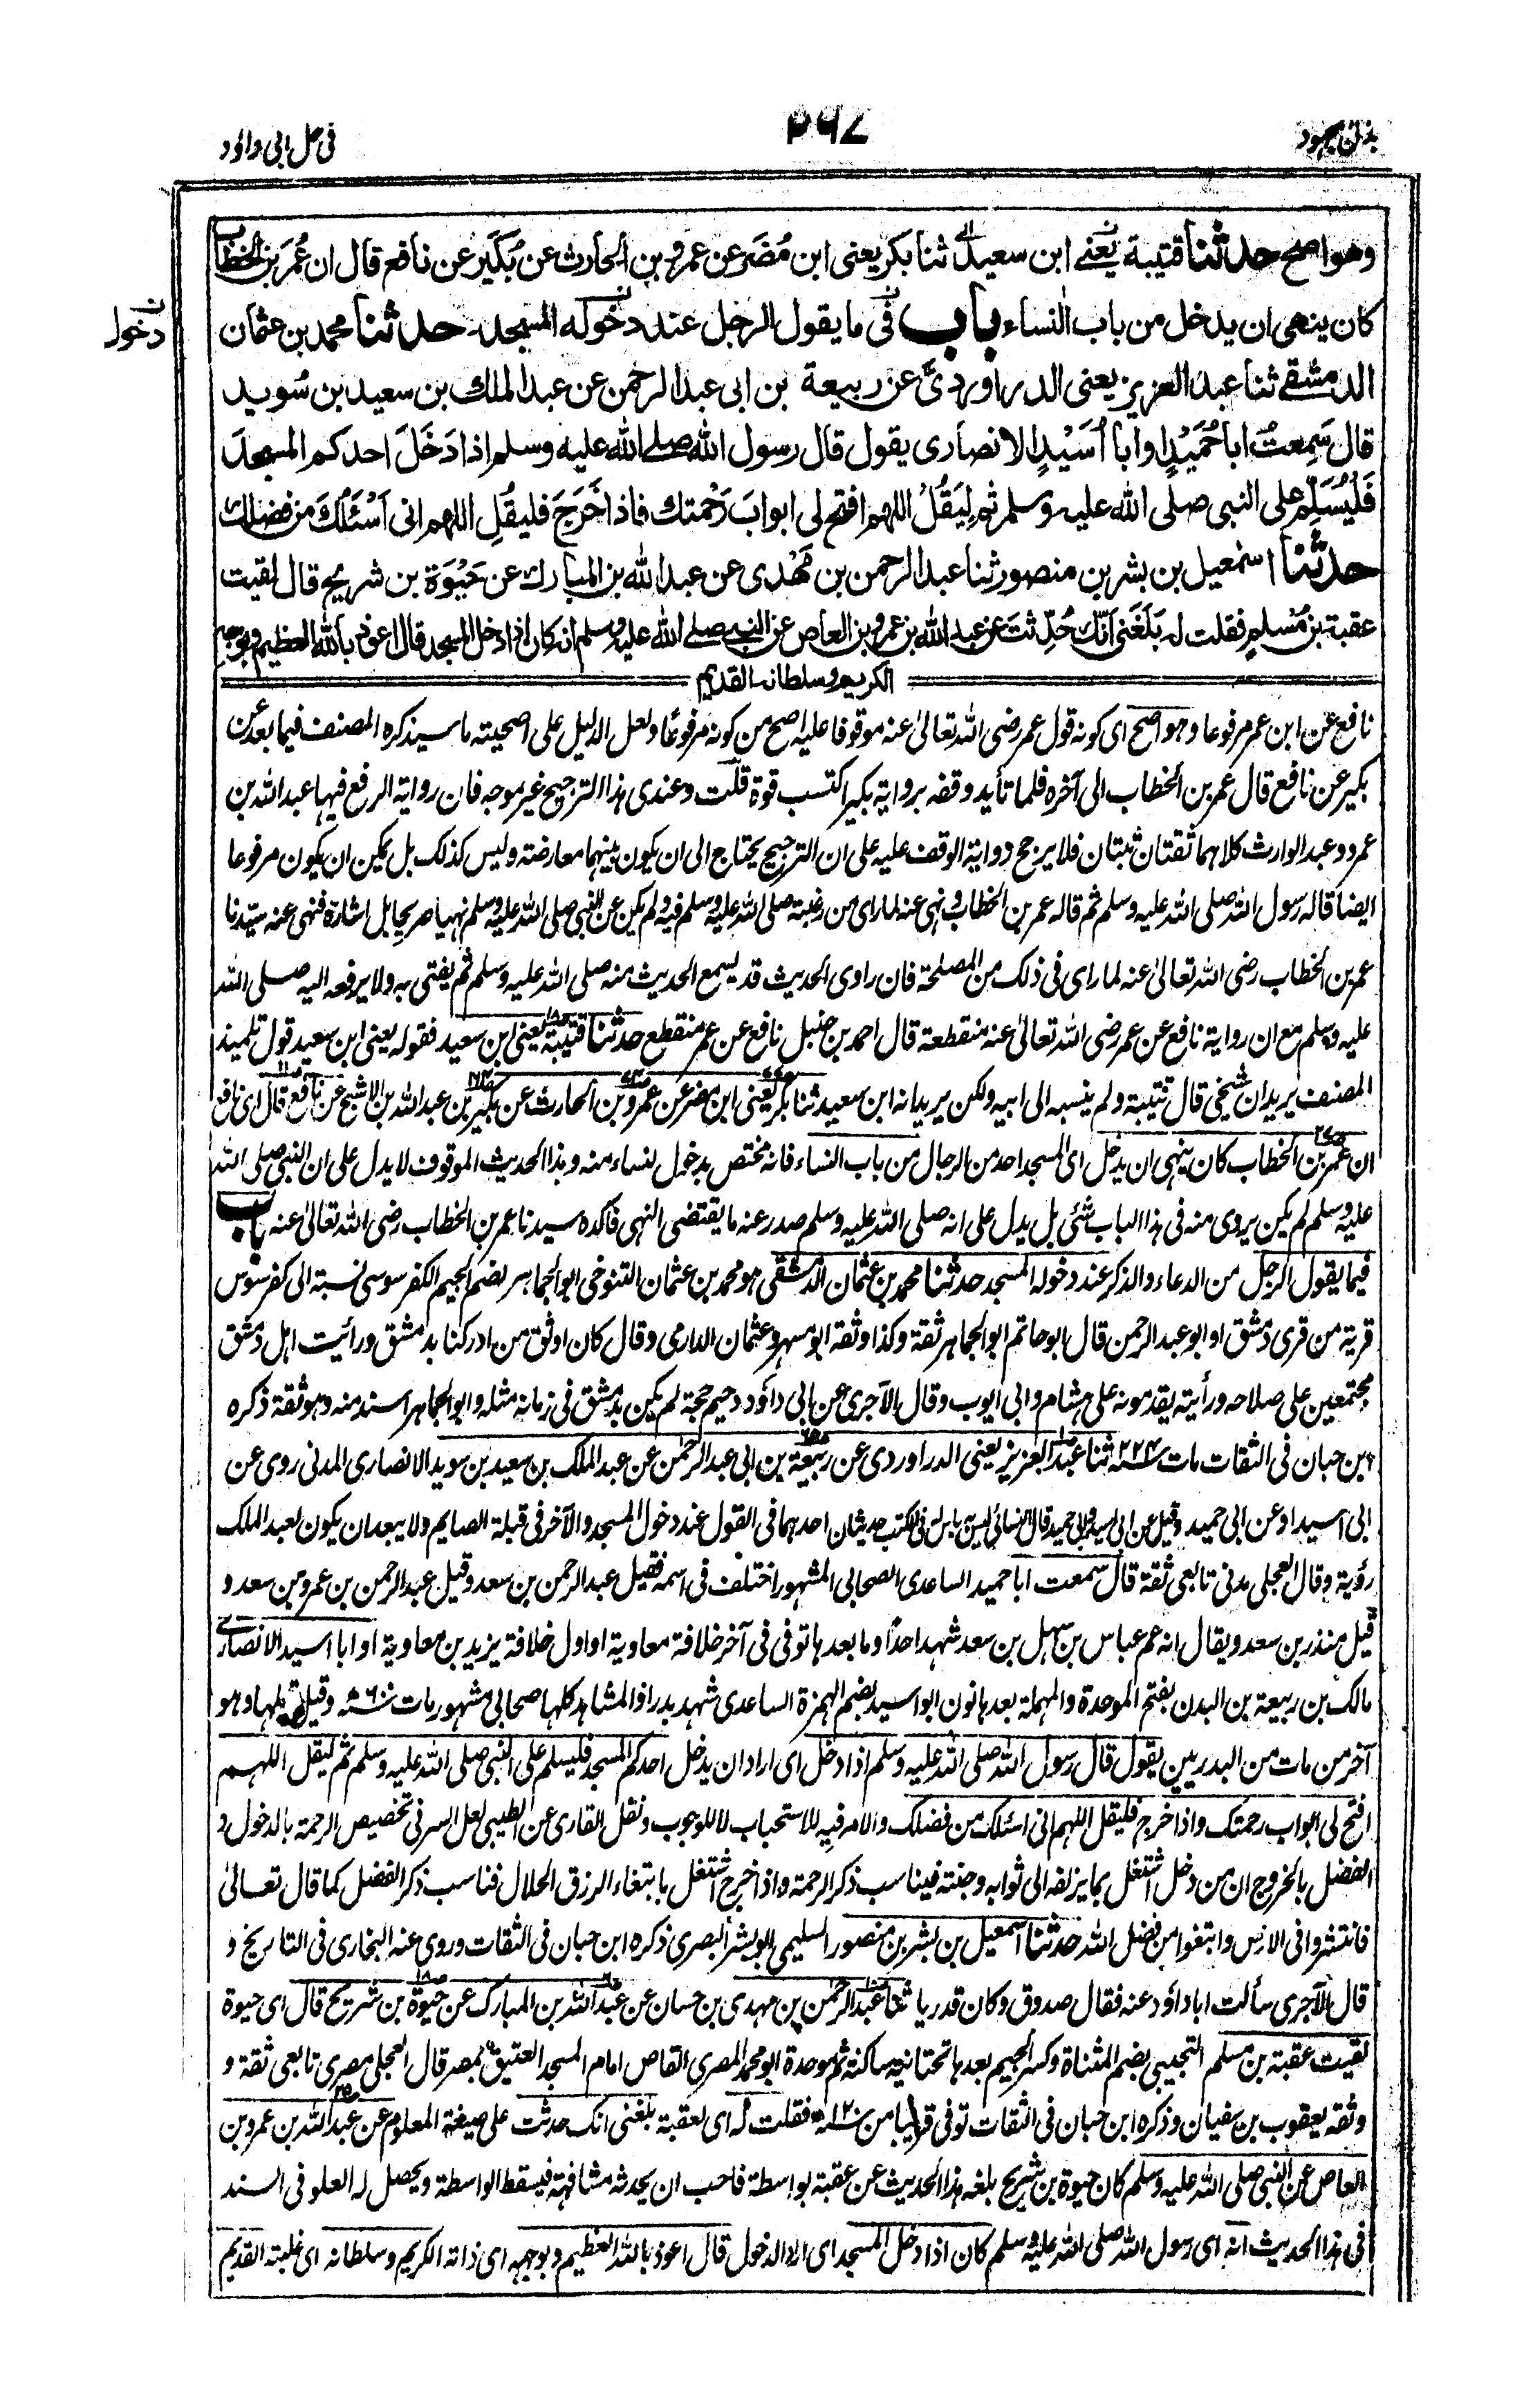 بذل المجهود
٢٦٧
فی حل ابی داؤد
وهو اصح حدثنا قتيبة يعنے ابن سعيد ثنا بكر يعنی ابن مُضَر عن عمرو بن الحارث عن بُكَير عن نافع قال ان عُمَر بن الخطاب
كان ينهی ان يدخل من باب النساء باب فی ما يقول الرجل عند دخوله المسجد حدثنا محمد بن عثمان
دخول
الدمشقے ثنا عبد العزيز يعنی الدراوردیّ عن ربيعة بن ابی عبد الرحمن عن عبد الملك بن سعيد بن سُويد
قال سَمِعتُ ابا حُمَيْدٍ او ابا اُسَيْدٍ الانصاری يقول قال رسول الله صلے الله عليه وسلم اذا دَخَلَ احدكم المسجدَ
فَلْيُسَلِّم علی النبی صلی الله عليه وسلم ثم لِيَقُلْ اللهم افتح لی ابوابَ رَحْمتك فاذا خَرَجَ فليقُلِ اللهم انی اَسْئَلُكَ من فضلك
حدثنا اسمٰعيل بن بشر بن منصور ثنا عبد الرحمن بن مَهْدی عن عبد الله بن المبارك عن حَيْوَة بن شريح قال لقيت
عقبة بن مُسْلمٍ فقلت له بَلَغَنی اَنّك حُدِّثتَ عن عبد الله بن عمرو بن العاص عن النبی صلے الله عليه وسلم انه كان اذا دخل المسجد قال اعوذ بالله العظيم وبوجهه
الكريم وسلطانه القديم
نافع عن ابن عمر مرفوعا وهو اصح ای كونه قول عمر رضی الله تعالیٰ عنه موقوفا عليه اصح من كونه مرفوعًا ولعل الدليل علی اصحيته ما سيذكره المصنف فيما بعد عن
بكير عن نافع قال عمر بن الخطاب الی آخره فلما تأيد وقفه برواية بكير اكتسب قوة قلت وعندی هذا الترجيح غير موجه فان رواية الرفع فيها عبد الله بن
عمرو وعبد الوارث كلاهما ثقتان ثبتان فلا يرجح رواية الوقف عليه علی ان الترجيح يحتاج الی ان يكون بينهما معارضة وليس كذلك بل يمكن ان يكون مرفوعا
ايضا قاله رسول الله صلی الله عليه وسلم ثم قاله عمر بن الخطاب ونهی عنه لما رای من رغبة صلی الله عليه وسلم فيه ولم يكن عن النبی صلی الله عليه وسلم نهيا صريحا بل اشارة فنهی عنه سيّدنا
عمر بن الخطاب رضی الله تعالیٰ عنه لما رای فی ذلك من المصلحة فان راوی الحديث قد يسمع الحديث منه صلی الله عليه وسلم ثم يفتی به ولا يرفعه اليه صلی الله
عليه وسلم مع ان رواية نافع عن عمر رضی الله تعالیٰ عنه منقطعة قال احمد بن حنبل نافع عن عمر منقطع حدثنا قتيبة يعنی ابن سعيد فقوله يعنی ابن سعيد قول تلميذ
المصنف يريد ان شيخی قال قتيبة ولم ينسبه الی ابيه ولكن يريد انه ابن سعيد ثنا بكر يعنی ابن مضر عن عمرو بن الحارث عن بكير بن عبد الله بن الاشج عن نافع قال ای نافع
ان عمر بن الخطاب كان ينهی ان يدخل ای المسجد احد من الرجال من باب النساء فانه مختص بدخول النساء منه وهذا الحديث الموقوف لا يدل علی ان النبی صلی الله
عليه وسلم لم يكن يروی منه فی هذا الباب شئی بل يدل علی انه صلی الله عليه وسلم صدر عنه ما يقتضی النهی فاكده سيدنا عمر بن الخطاب رضی الله تعالیٰ عنه باب
فيما يقول الرجل من الدعاء والذكر عند دخوله المسجد حدثنا محمد بن عثمان الدمشقی هو محمد بن عثمان التنوخی ابو الجماهر بضم الجيم الكفرسوسی نسبة الی كفرسوس
قرية من قری دمشق او ابو عبد الرحمن قال ابو حاتم ابو الجماهر ثقة وكذا وثقه ابو مسهر وعثمان الدارمی وقال كان اوثق من ادركنا بدمشق ورائيت اهل دمشق
مجتمعين علی صلاحه ورأيته يقدمونه علی هشام وابی ايوب وقال الآجری عن ابی داؤد دحيم حجة لم يكن بدمشق فی زمانه مثله وابو الجماهر اسند منه وهو ثقة ذكره
ابن حبان فی الثقات مات سنة ٢٢٤ ثنا عبد العزيز يعنی الدراوردی عن ربيعة بن ابی عبد الرحمٰن عن عبد الملك بن سعيد بن سويد الانصاری المدنی روی عن
ابی اسيد او عن ابی حميد وقيل عن ابی اسيد وابی حميد قال النسائی ليس به باس له فی الكتب حديثان احدهما فی القول عند دخول المسجد والآخر فی قبلة الصايم ولا يبعد ان يكون لعبد الملك
رؤية وقال العجلی مدنی تابعی ثقة قال سمعت ابا حميد الساعدی الصحابی المشهور اختلف فی اسمه فقيل عبد الرحمن بن سعد وقيل عبد الرحمن بن عمرو بن سعد و
قيل منذر بن سعد ويقال انه عم عباس بن سهل بن سعد شهد احدًا وما بعدها توفی فی آخر خلافة معاوية او اول خلافة يزيد بن معاوية او ابا اسيد الانصاری
مالك بن ربيعة بن البدن بفتح الموحدة والمهملة بعدها نون ابو اسيد بضم الهمزة الساعدی شهد بدرا والمشاهد كلها صحابی مشهور مات سنة ٦٠ وقيل قبلها وهو
آخر من مات من البدريين يقول قال رسول الله صلی الله عليه وسلم اذا دخل ای اراد ان يدخل احدكم المسجد فليسلم علی النبی صلی الله عليه وسلم ثم ليقل اللهم
افتح لی ابواب رحمتك واذا خرج فليقل اللهم انی اسئلك من فضلك والامر فيه للاستحباب لا للوجوب ونقل القاری عن الطيبی لعل السر فی تخصيص الرحمة بالدخول و
الفضل بالخروج ان من دخل اشتغل بما يزلفه الی ثوابه وجنته فيناسب ذكر الرحمة واذا خرج اشتغل بابتغاء الرزق الحلال فناسب ذكر الفضل كما قال تعالیٰ
فانتشروا فی الارض وابتغوا من فضل الله حدثنا اسمعيل بن بشر بن منصور السليمی ابو بشر البصری ذكره ابن حبان فی الثقات وروی عنه البخاری فی التاريخ و
قال الآجری سألت ابا داؤد عنه فقال صدوق وكان قدريا ثنا عبد الرحمن بن مهدی بن حسان عن عبد الله بن المبارك عن حيوة بن شريح قال ای حيوة
لقيت عقبة بن مسلم التجيبی بضم المثناة وكسر الجيم بعدها تحتانية ساكنة ثم موحدة ابو محمد المصری القاص امام المسجد العتيق بمصر قال العجلی مصری تابعی ثقة و
وثقه يعقوب بن سفيان وذكره ابن حبان فی الثقات توفی قريبا من سنة ١٢٠ فقلت له ای لعقبة بلغنی انك حدثت علی صيغة المعلوم عن عبد الله بن عمرو بن
العاص عن النبی صلی الله عليه وسلم كان حيوة بن شريح بلغه هذا الحديث عن عقبة بواسطة فاحب ان يحدثه مشافهة فيسقط الواسطة ويحصل له العلو فی السند
فی هذا الحديث انه ای رسول الله صلی الله عليه وسلم كان اذا دخل المسجد ای اراد الدخول قال اعوذ بالله العظيم وبوجهه ای ذاته الكريم وسلطانه ای غلبته القديم